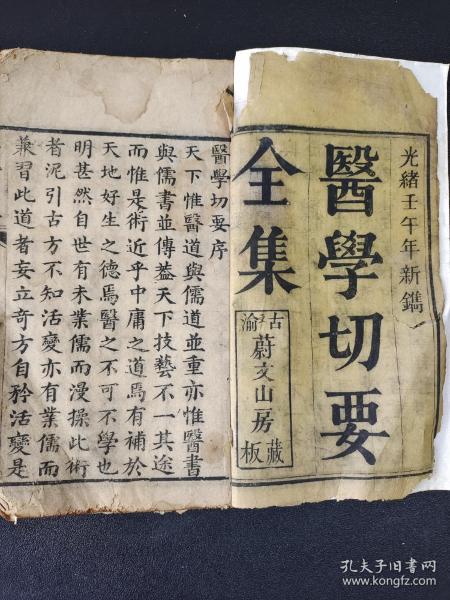 光緒壬午年新鐫
醫學切要
全集
古渝
蔚文山房
藏板
醫學切要序
天下惟醫道與儒道並重亦惟醫書
與儒書並傳蓋天下技藝不一其途
而惟是術近乎中庸之道焉有補於
天地好生之德焉醫之不可不學也
明甚然自世有未業儒而漫操此術
者泥引古方不知活變亦有業儒而
兼習此道者妄立奇方自矜活變是
孔夫子旧书网
www.kongfz.com